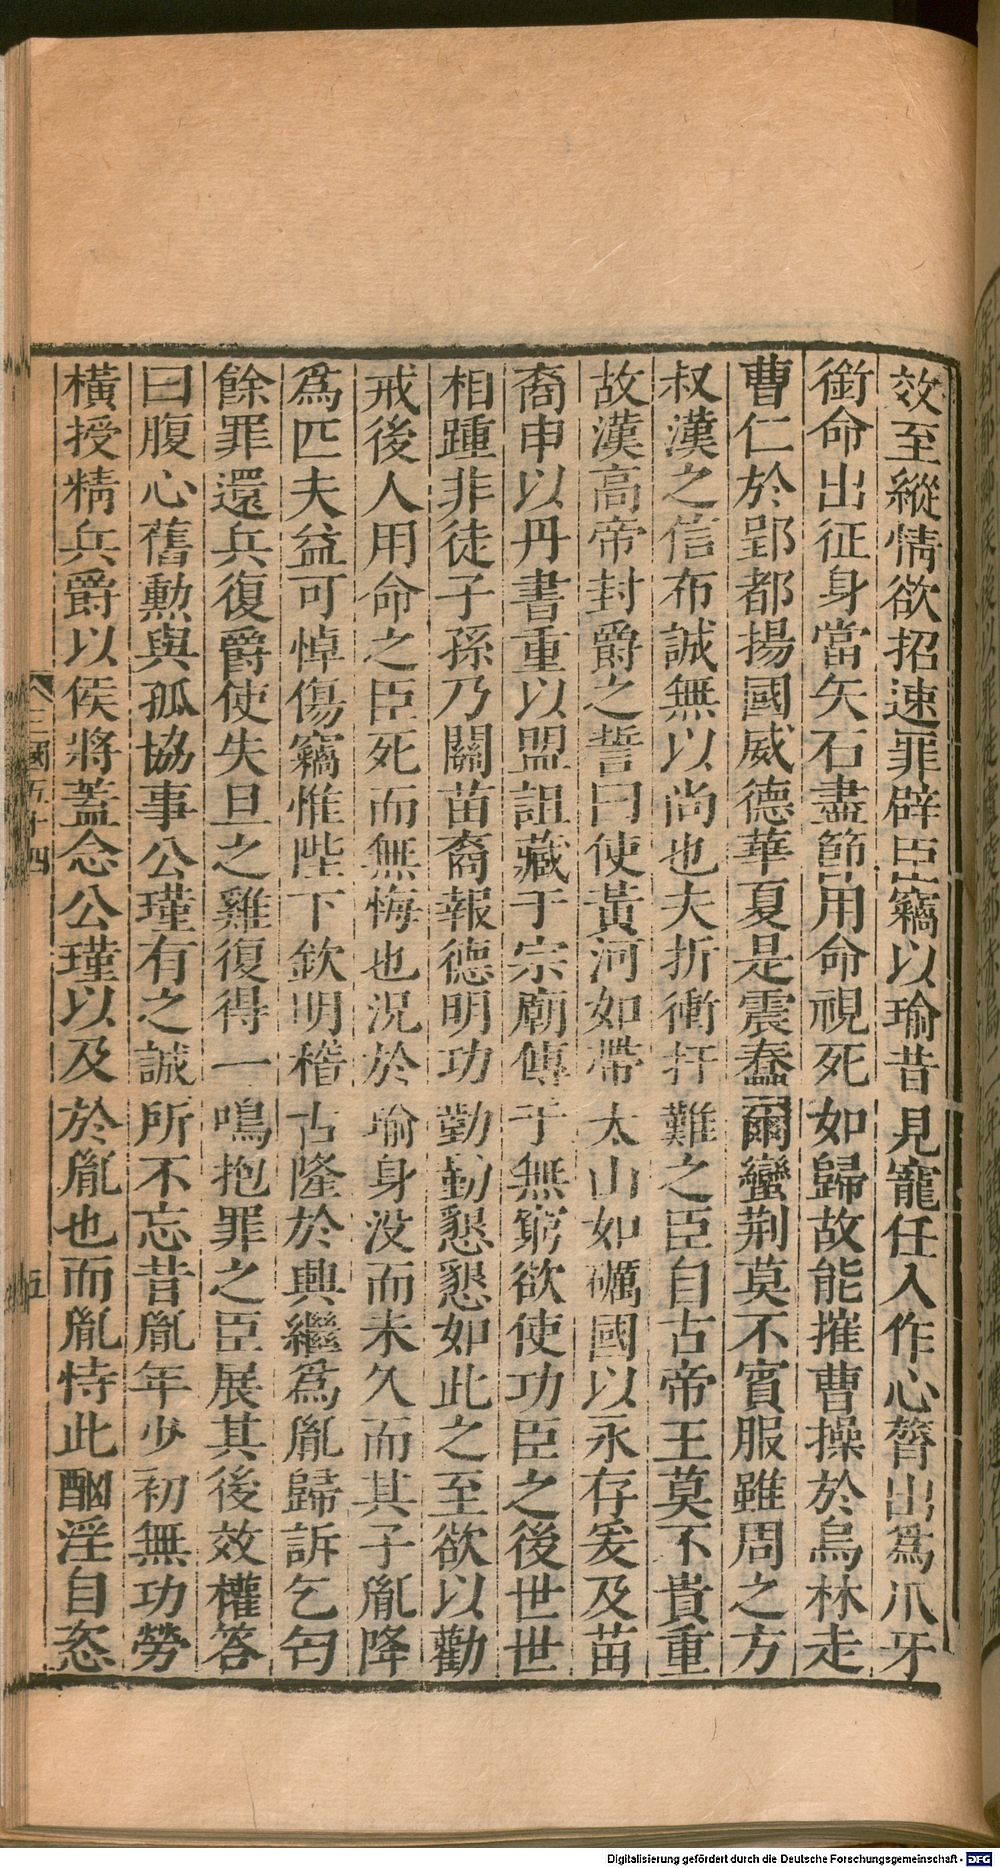 效至縱情欲招速罪辟臣竊以瑜昔見寵任入作心膂出爲爪牙
銜命出征身當矢石盡節用命視死如歸故能摧曹操於烏林走
曹仁於郢都揚國威德華夏是震蠢爾蠻荆莫不賓服雖周之方
叔漢之信布誠無以尚也夫折衝扞難之臣自古帝王莫不貴重
故漢高帝封爵之誓曰使黃河如帶太山如礪國以永存爰及苗
裔申以丹書重以盟詛藏于宗廟傳于無窮欲使功臣之後世世
相踵非徒子孫乃關苗裔報德明功勤勤懇懇如此之至欲以勸
戒後人用命之臣死而無悔也況於瑜身没而未久而其子胤降
爲匹夫益可悼傷竊惟陛下欽明稽古隆於興繼爲胤歸訴乞匄
餘罪還兵復爵使失旦之雞復得一鳴抱罪之臣展其後效權答
曰腹心舊勳與孤協事公瑾有之誠所不忘昔胤年少初無功勞
橫授精兵爵以侯將蓋念公瑾以及於胤也而胤恃此酗淫自恣
三國五十四
五
Digitalisierung gefördert durch die Deutsche Forschungsgemeinschaft - DFG